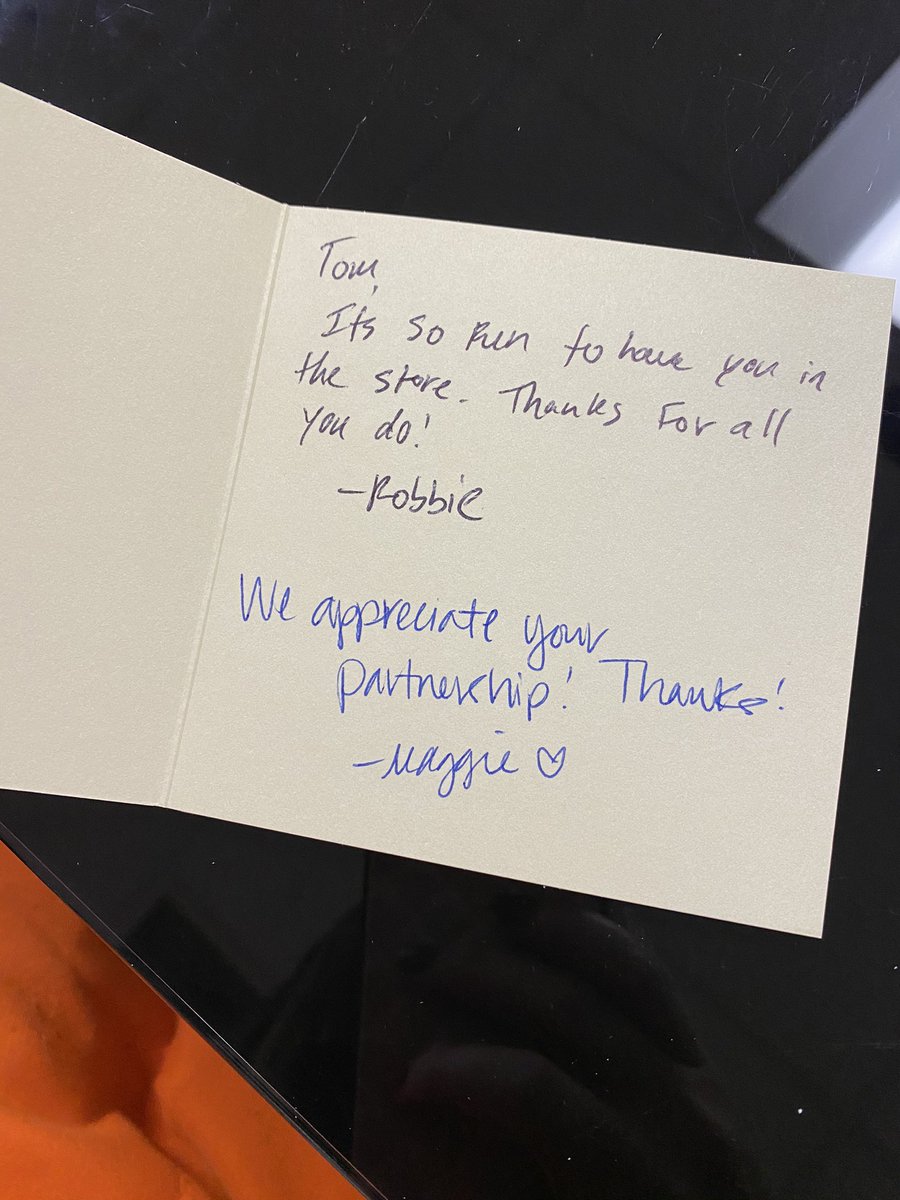 Tom,
It's so Fun to have you in
the store. Thanks For all
you do!
-Robbie
We appreciate your
partnership! Thanks!
-Maggie ♡